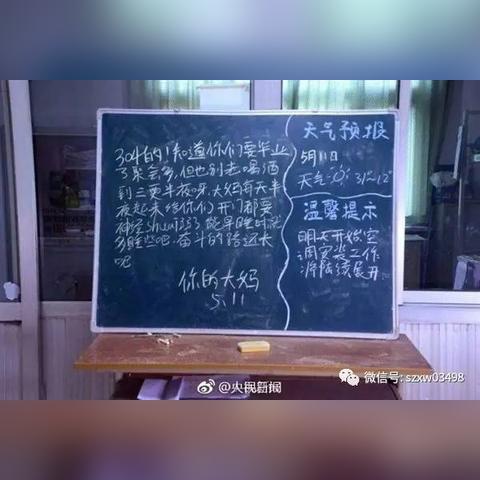 304的！知道你们要毕业
了聚会多,但也别老喝酒
到三更半夜呀.大妈每天半
夜起来给你们开门都要
神经shuai弱了.能早睡时就
多睡些吧.奋斗的路还长
呢
你的大妈
5.11
天气预报
5月11日
天气 31~12°
温馨提示
明天开始,空
调安装工作
将陆续展开.
@央视新闻
微信号: szxw03498